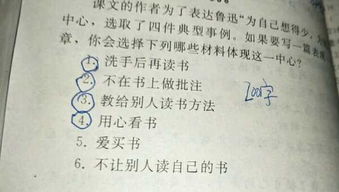 课文的作者为了表达鲁迅"为自己想得少,为
中心,选取了四件典型事例。如果要写一篇
章,你会选择下列哪些材料体现这一中心?
1. 洗手后再读书
2. 不在书上做批注
3. 教给别人读书方法
4. 用心看书
5. 爱买书
6. 不让别人读自己的书
200字